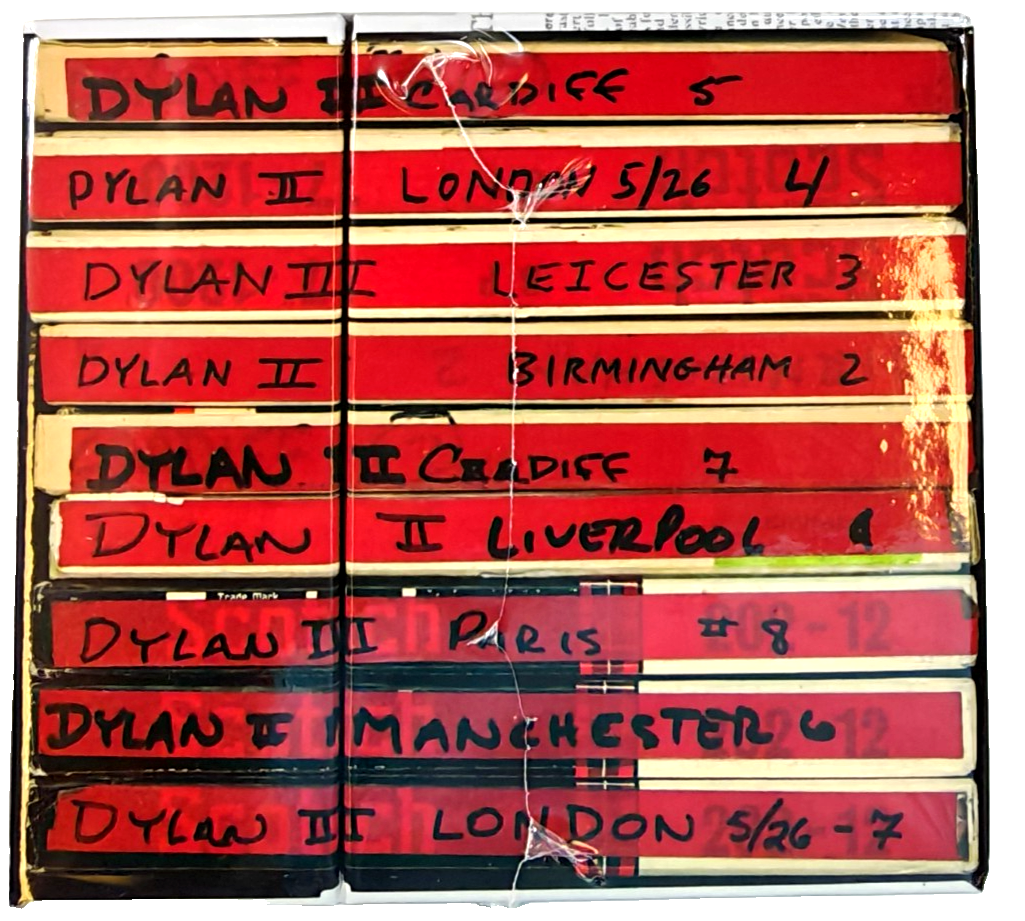 DYLAN III CARDIFF 5
DYLAN II LONDON 5/26 4
DYLAN III LEICESTER 3
DYLAN II BIRMINGHAM 2
DYLAN II CARDIFF 7
DYLAN II LIVERPOOL
Trade Mark
DYLAN III PARIS # 8
Scotch 202-12
DYLAN II MANCHESTER 6
202-12
DYLAN III LONDON 5/26 - 7